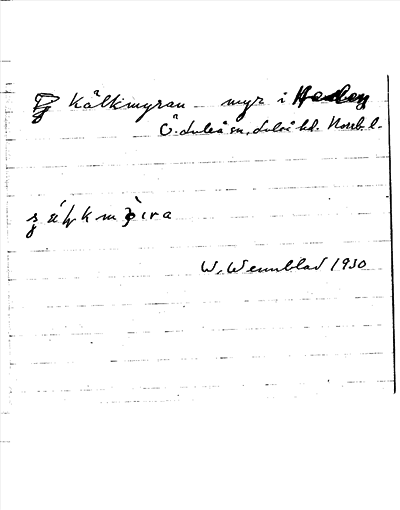 Kålkmyran myr i Heden
Ö. Luleå sn, Luleå hd. Norrb. l.
W. Wennblad 1930